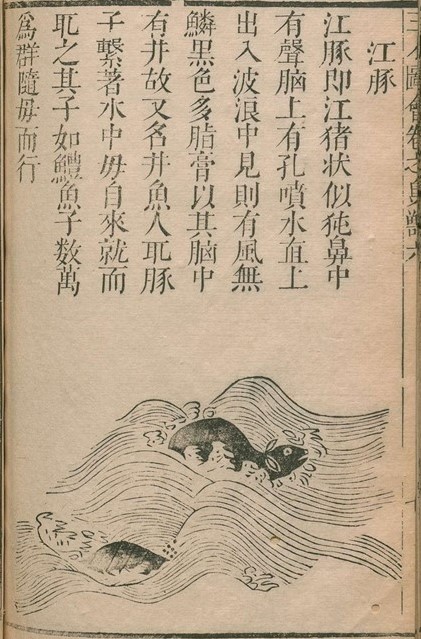 三才圖會卷之鳥獸六
江豚
江豚即江猪状似㹠鼻中
有聲腦上有孔噴水直上
出入波浪中見則有風無
鱗黑色多脂膏以其腦中
有井故又名井魚人取豚
子繫著水中母自來就而
取之其子如鱧魚子数萬
爲群隨母而行